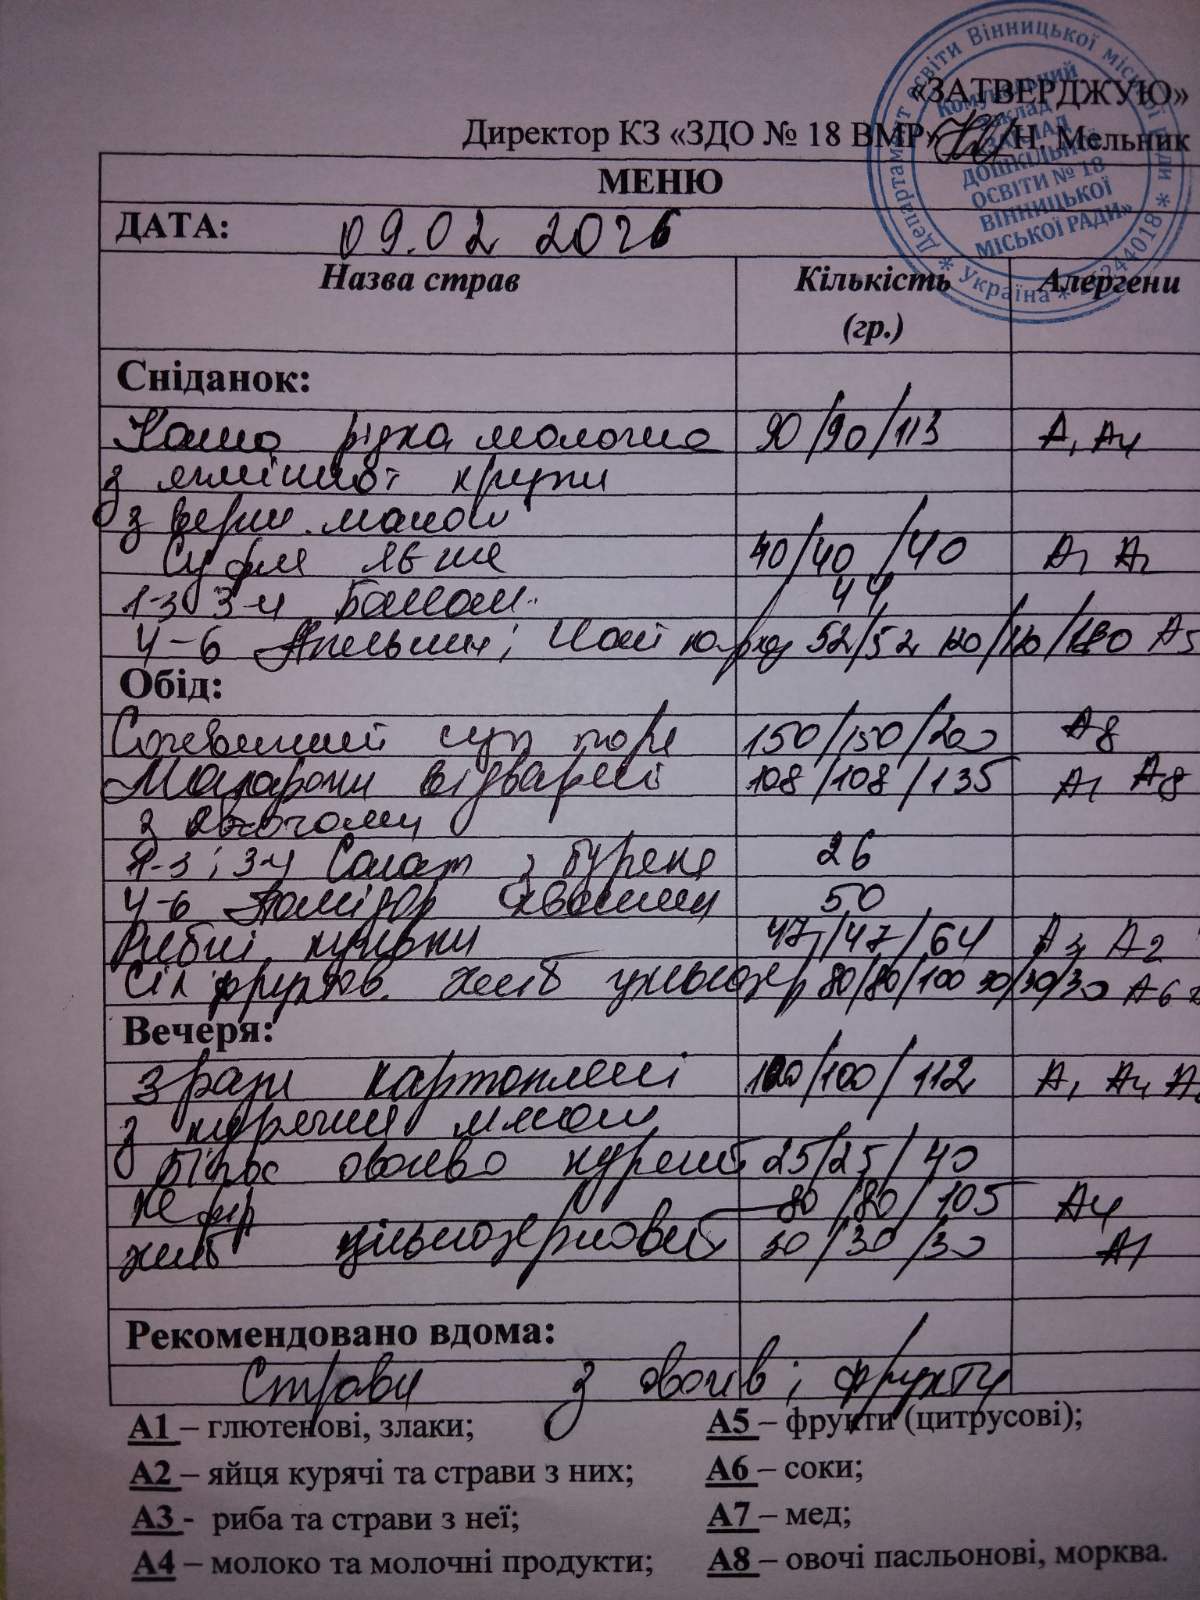 «ЗАТВЕРДЖУЮ»
Директор КЗ «ЗДО № 18 ВМР» Н. Мельник
Департамент освіти Вінницької міської ради * Україна *
Комунальний
заклад
«ЗАКЛАД
ДОШКІЛЬНОЇ
ОСВІТИ № 18
ВІННИЦЬКОЇ
МІСЬКОЇ РАДИ»
МЕНЮ
ДАТА: 09.02 2026
Назва страв Кількість (гр.) Алергени
Сніданок:
Каша рідка молочна 90/90/113 А1 А4
з ячмінної крупи
з верш. маслом
Суфле яєчне 40/40/40
1-3 3-4 Банан 44
4-6 Апельсин; Чай 52/52 120/120/180 А5
Обід:
Сочевичний суп пюре 150/150/200 А8
Макарони відварені 108/108/135 А1 А8
з овочами
1-3; 3-4 Салат з буряка 26
4-6 Помідор квашений 50
Рибні 47/47/64 А3 А2
Сік фруктов. хліб цільнозер 80/80/100 30/30/30 А6
Вечеря:
Зрази картопляні 100/100/112 А1 А4
з курячим мясом
Соус овочево 25/25/40
Кефір 80/80/105 А4
хліб цільнозерновий 30/30/30 А1
Рекомендовано вдома:
Страви з овочів і фрукти
А1 – глютенові, злаки; А5 – фрукти (цитрусові);
А2 – яйця курячі та страви з них; А6 – соки;
А3 - риба та страви з неї; А7 – мед;
А4 – молоко та молочні продукти; А8 – овочі пасльонові, морква.